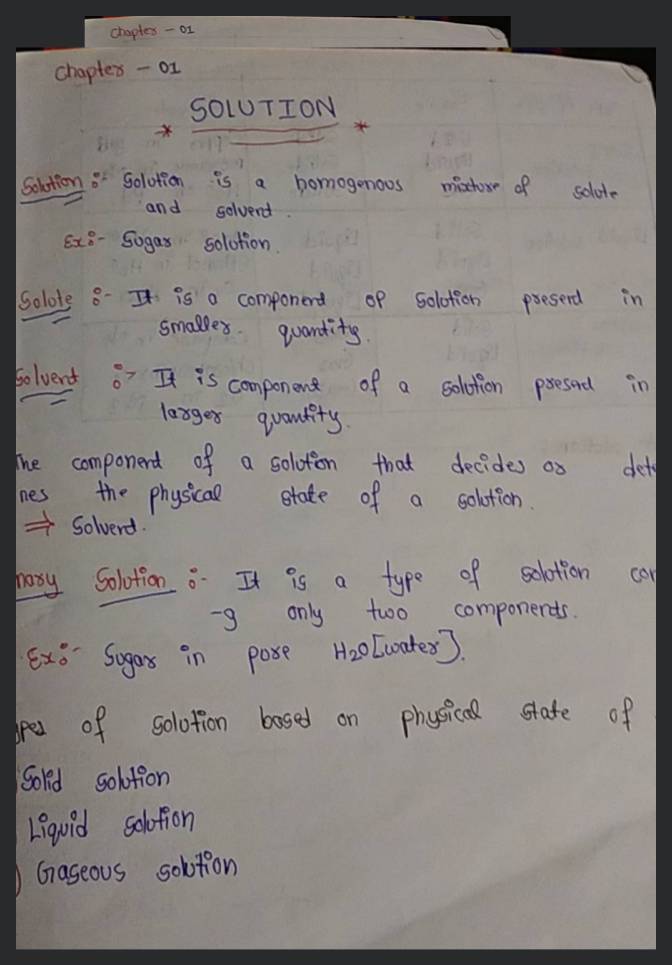 Chapter - 01
Chapter - 01
* SOLUTION *
Solution :- Solution is a homogenous mixture of solute
and solvent.
Ex:- Sugar solution.
Solute :- It is a component of solution present in
smaller quantity.
Solvent :- It is component of a solution present in
larger quantity.
The component of a solution that decides or dete
nes the physical state of a solution.
⇒ Solvent.
nary Solution :- It is a type of solution con
-g only two components.
Ex:- Sugar in pure H2O[water].
ypes of solution based on physical state of
Solid solution
Liquid solution
) Gaseous solution